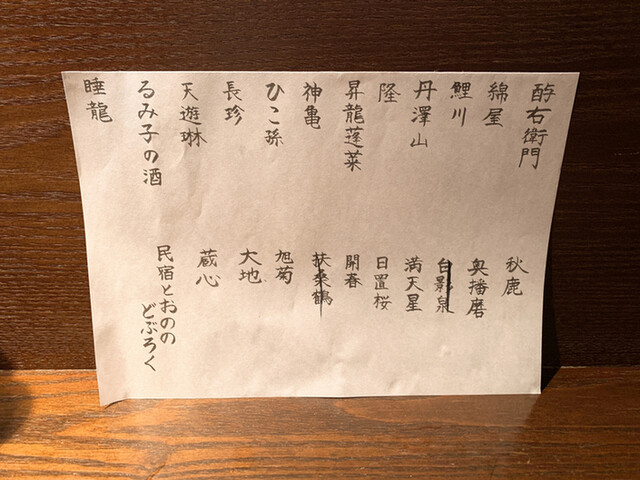 酉右衛門
綿屋
鯉川
丹澤山
隆
昇龍蓬莱
神亀
ひこ孫
長珍
天遊琳
るみ子の酒
睡龍
秋鹿
奥播磨
台影泉
満天星
日置桜
開春
扶桑鶴
旭菊
大地
蔵心
民宿とおのの
どぶろく